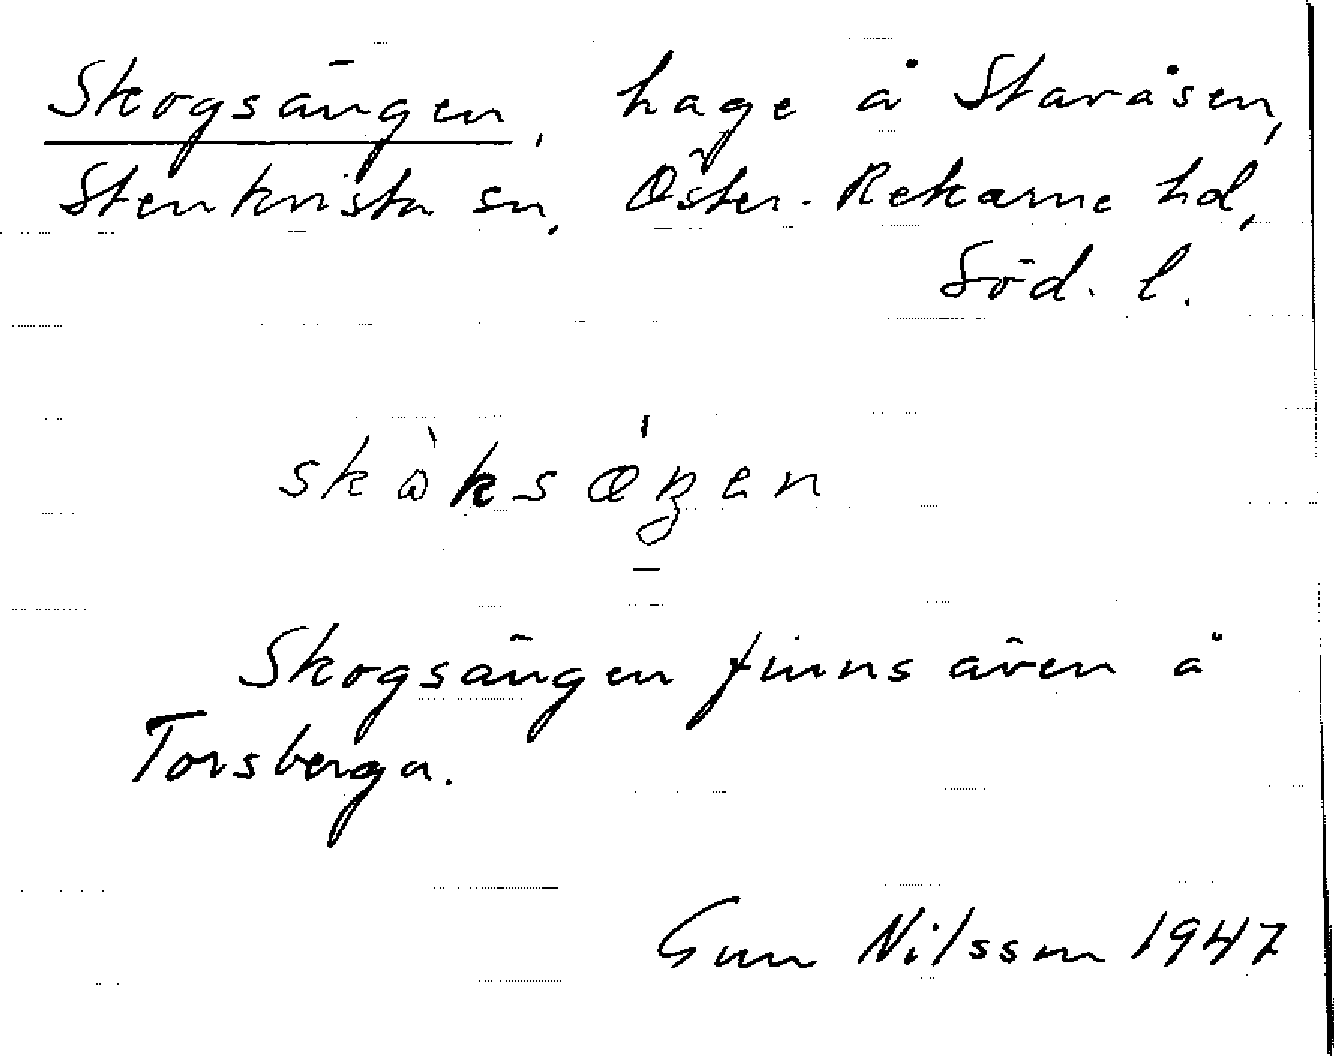 Skogsängen, hage å Staråsen,
Stenkvista sn, Öster-Rekarne hd,
Söd. l.
Skogsängen finns även å
Torsberga.
Gun Nilsson 1947